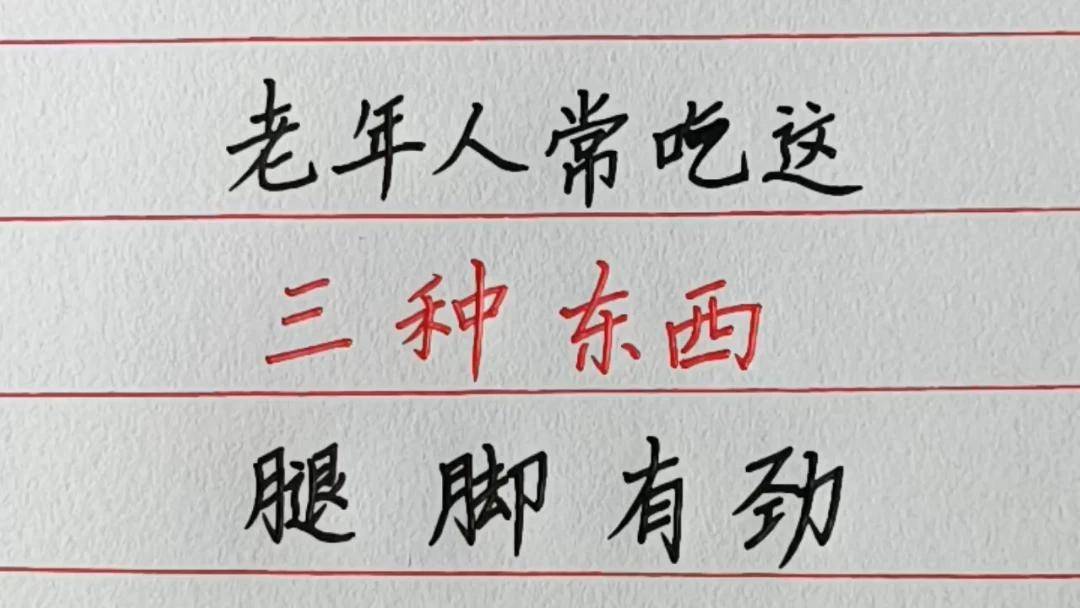 老年人常吃这
三种东西
腿脚有劲